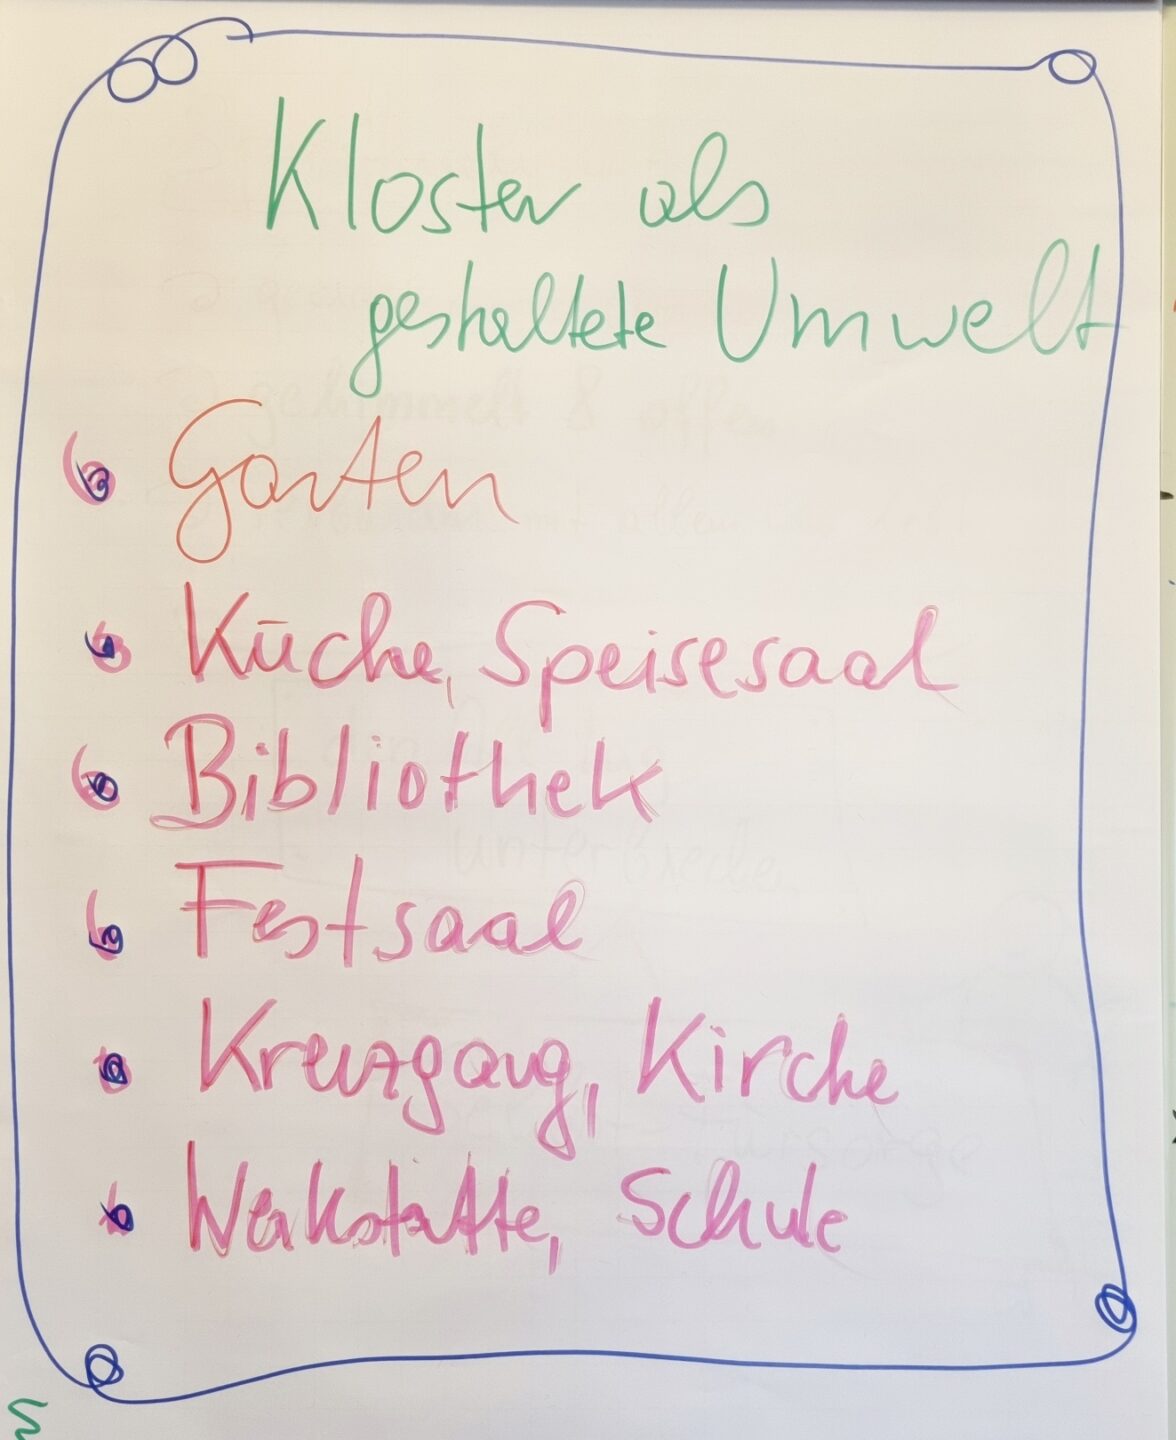 Kloster als
gestaltete Umwelt
Garten
Küche, Speisesaal
Bibliothek
Festsaal
Kreuzgang, Kirche
Werkstatte, Schule